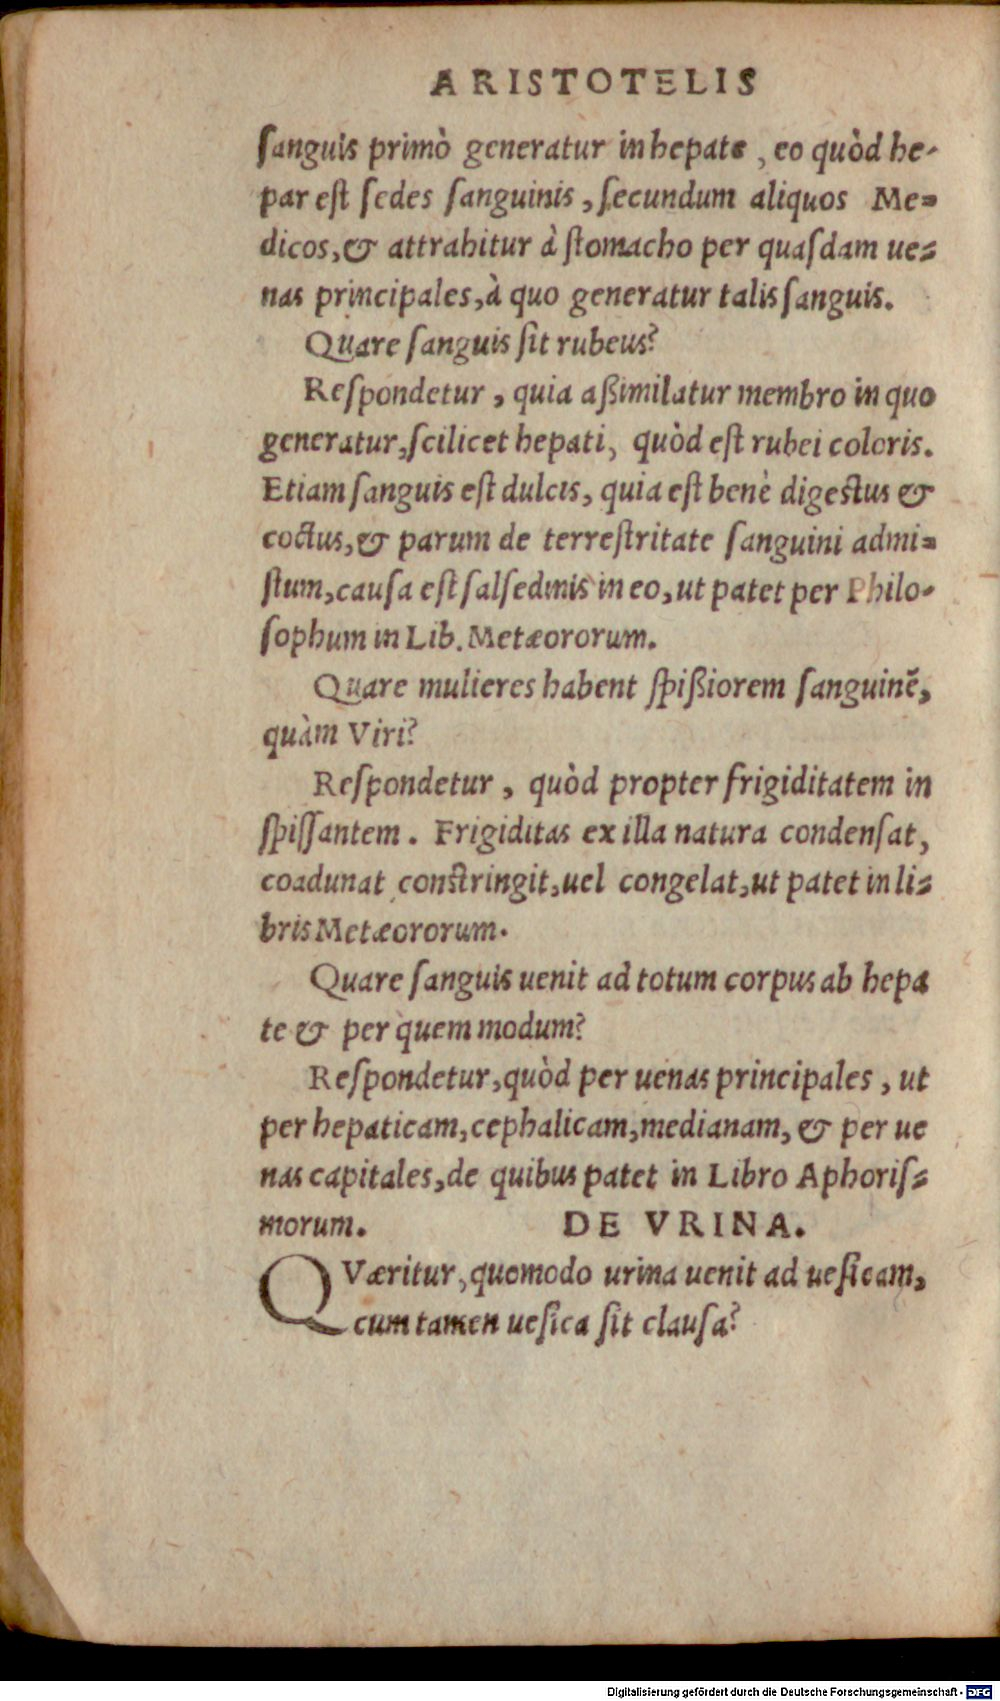 ARISTOTELIS
ſanguis primò generatur in hepate, eo quòd he-
par eſt ſedes ſanguinis, ſecundum aliquos Me-
dicos, & attrahitur à ſtomacho per quaſdam ue-
nas principales, à quo generatur talis ſanguis.
Quare ſanguis ſit rubeus?
Reſpondetur, quia aßimilatur membro in quo
generatur, ſcilicet hepati, quòd eſt rubei coloris.
Etiam ſanguis eſt dulcis, quia eſt benè digestus &
coctus, & parum de terreſtritate ſanguini admi-
ſtum, cauſa eſt ſalſedinis in eo, ut patet per Philo-
ſophum in Lib. Metæororum.
Quare mulieres habent ſpißiorem ſanguinẽ,
quàm Viri?
Reſpondetur, quòd propter frigiditatem in
ſpiſſantem. Frigiditas ex illa natura condenſat,
coadunat constringit, uel congelat, ut patet in li-
bris Metæororum.
Quare ſanguis uenit ad totum corpus ab hepa
te & per quem modum?
Reſpondetur, quòd per uenas principales, ut
per hepaticam, cephalicam, medianam, & per ue
nas capitales, de quibus patet in Libro Aphoriſ-
morum. DE VRINA.
QVæritur, quomodo urina uenit ad ueſicam,
cum tamen ueſica ſit clauſa?
Digitalisierung gefördert durch die Deutsche Forschungsgemeinschaft - DFG